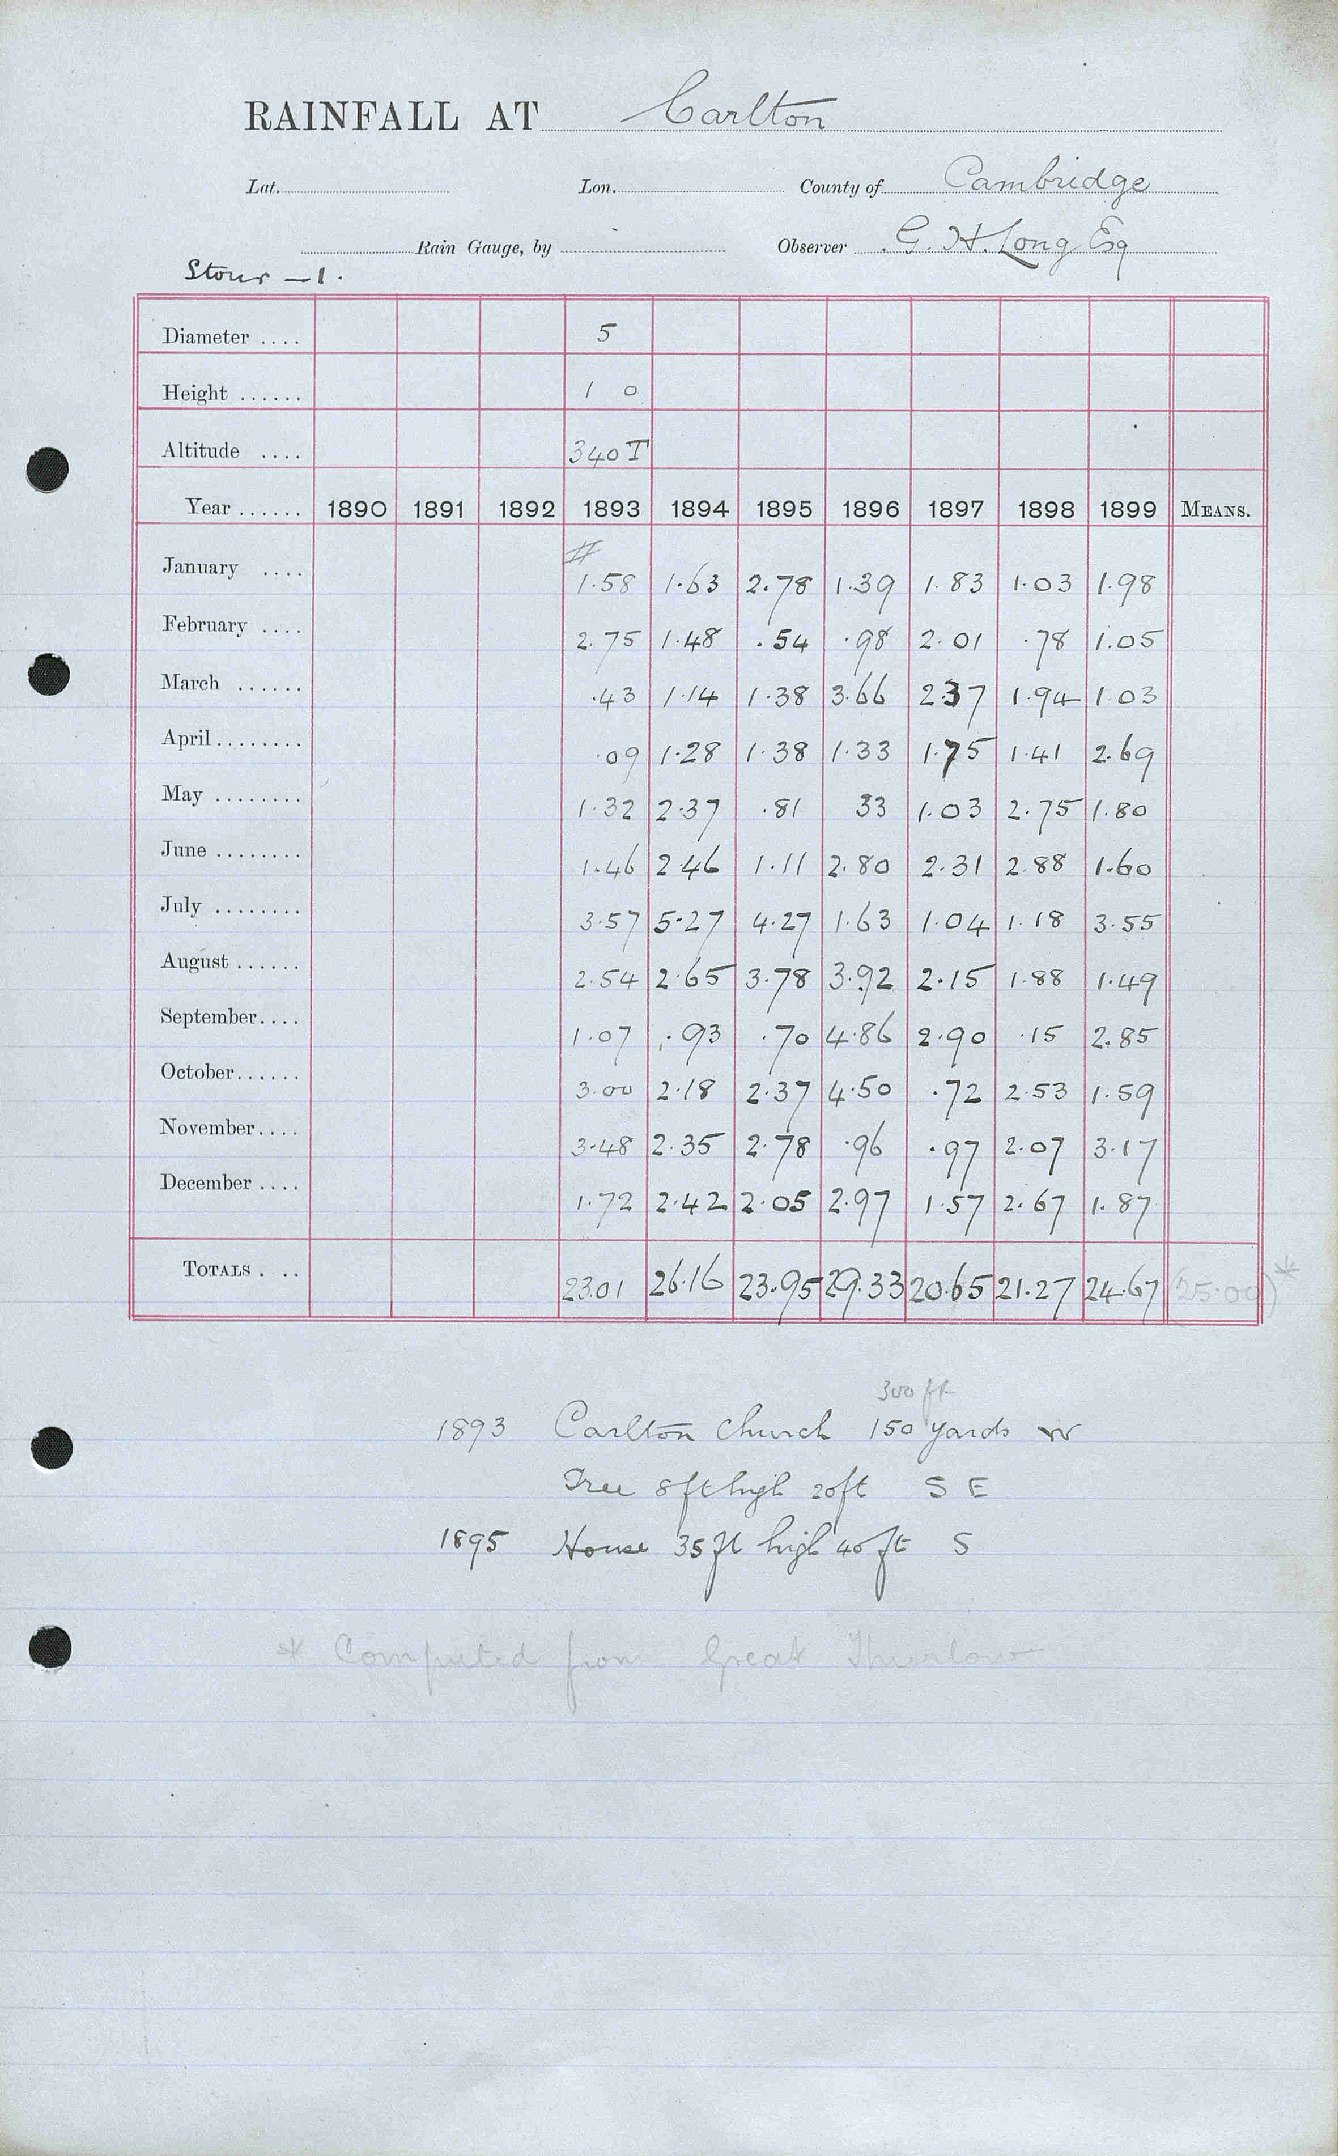 RAINFALL AT Carlton
Lat. Lon. County of Cambridge
Rain Gauge, by Observer G. H. Long Esq
Stour - 1.
Diameter .... 5
Height ...... 1 0
Altitude .... 340 T
Year ...... 1890 1891 1892 1893 1894 1895 1896 1897 1898 1899 MEANS.
#
January .... 1.58 1.63 2.78 1.39 1.83 1.03 1.98
February .... 2.75 1.48 .54 .98 2.01 .78 1.05
March ...... .43 1.14 1.38 3.66 2.37 1.94 1.03
April ........ .09 1.28 1.38 1.33 1.75 1.41 2.69
May ........ 1.32 2.37 .81 33 1.03 2.75 1.80
June ........ 1.46 2 46 1.11 2.80 2.31 2.88 1.60
July ........ 3.57 5.27 4.27 1.63 1.04 1.18 3.55
August ...... 2.54 2.65 3.78 3.92 2.15 1.88 1.49
September.... 1.07 .93 .70 4.86 2.90 .15 2.85
October...... 3.00 2.18 2.37 4.50 .72 2.53 1.59
November.... 3.48 2.35 2.78 .96 .97 2.07 3.17
December .... 1.72 2.42 2.05 2.97 1.57 2.67 1.87
TOTALS . .. 23.01 26.16 23.95 29.33 20.65 21.27 24.67 (25.00)*
300 ft
1893 Carlton Church 150 yards W
Tree 8 ft high 20 ft S E
1895 House 35 ft high 40 ft S
* Computed from Great Thurlow